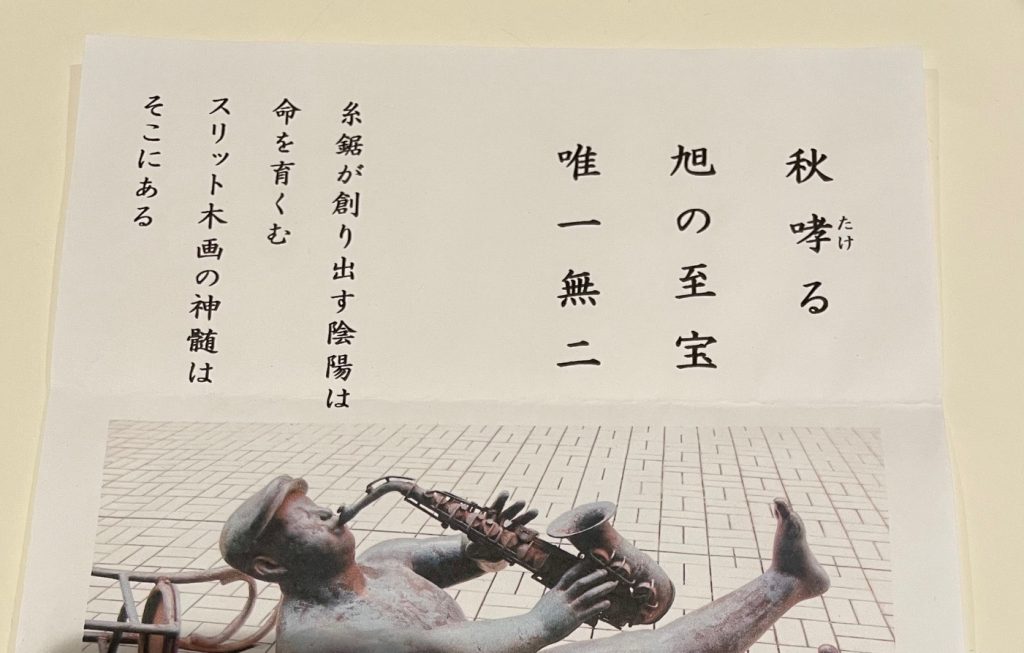 秋哮る
たけ
旭の至宝
唯一無二
糸鋸が創り出す陰陽は
命を育くむ
スリット木画の神髄は
そこにある